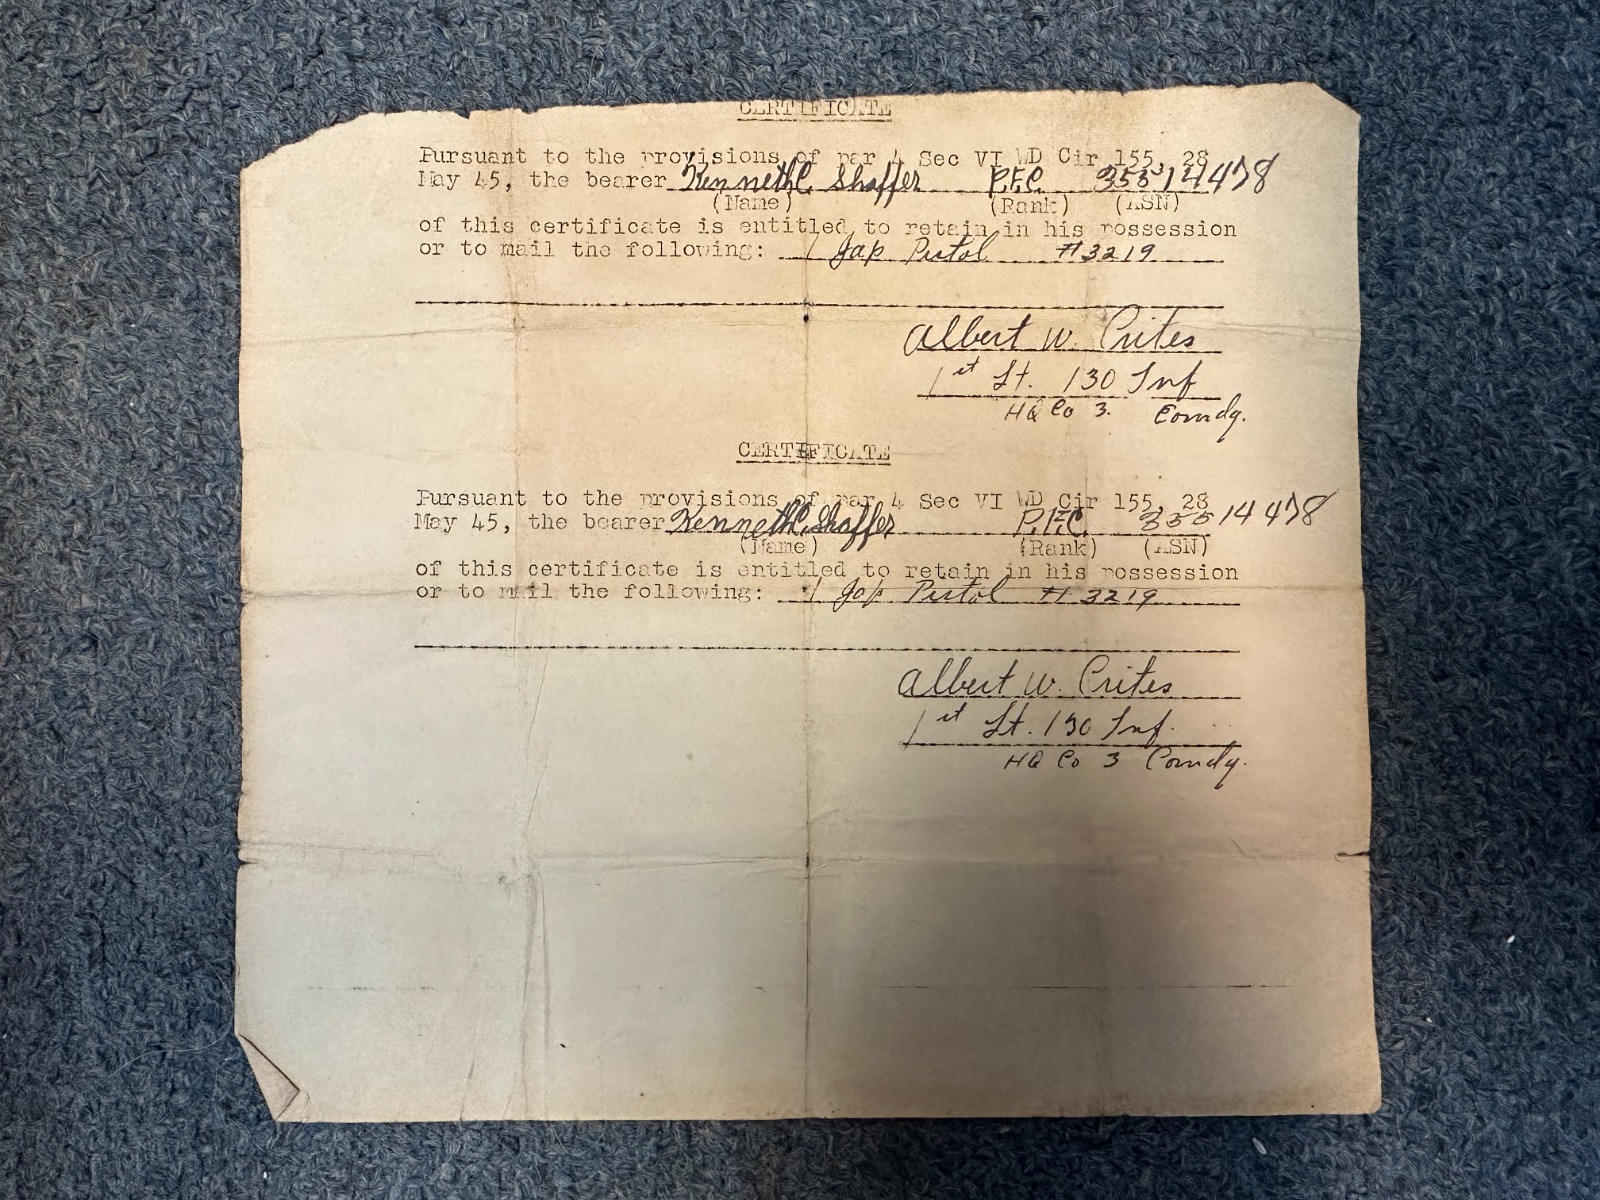 CERTIFICATE
Pursuant to the provisions of par 4 Sec VI WD Cir 155, 28
May 45, the bearer Kenneth C. Shaffer P.F.C. 35514478
(Name) (Rank) (ASN)
of this certificate is entitled to retain in his possession
or to mail the following: 1 Jap Pistol #3219
Albert W. Crites
1st Lt. 130 Inf
HQ Co 3. Comdg.
CERTIFICATE
Pursuant to the provisions of par 4 Sec VI WD Cir 155, 28
May 45, the bearer Kenneth C. Shaffer P.F.C. 35514478
(Name) (Rank) (ASN)
of this certificate is entitled to retain in his possession
or to mail the following: 1 Jap Pistol # 3219
Albert W. Crites
1st Lt. 130 Inf.
HQ Co 3 Comdg.